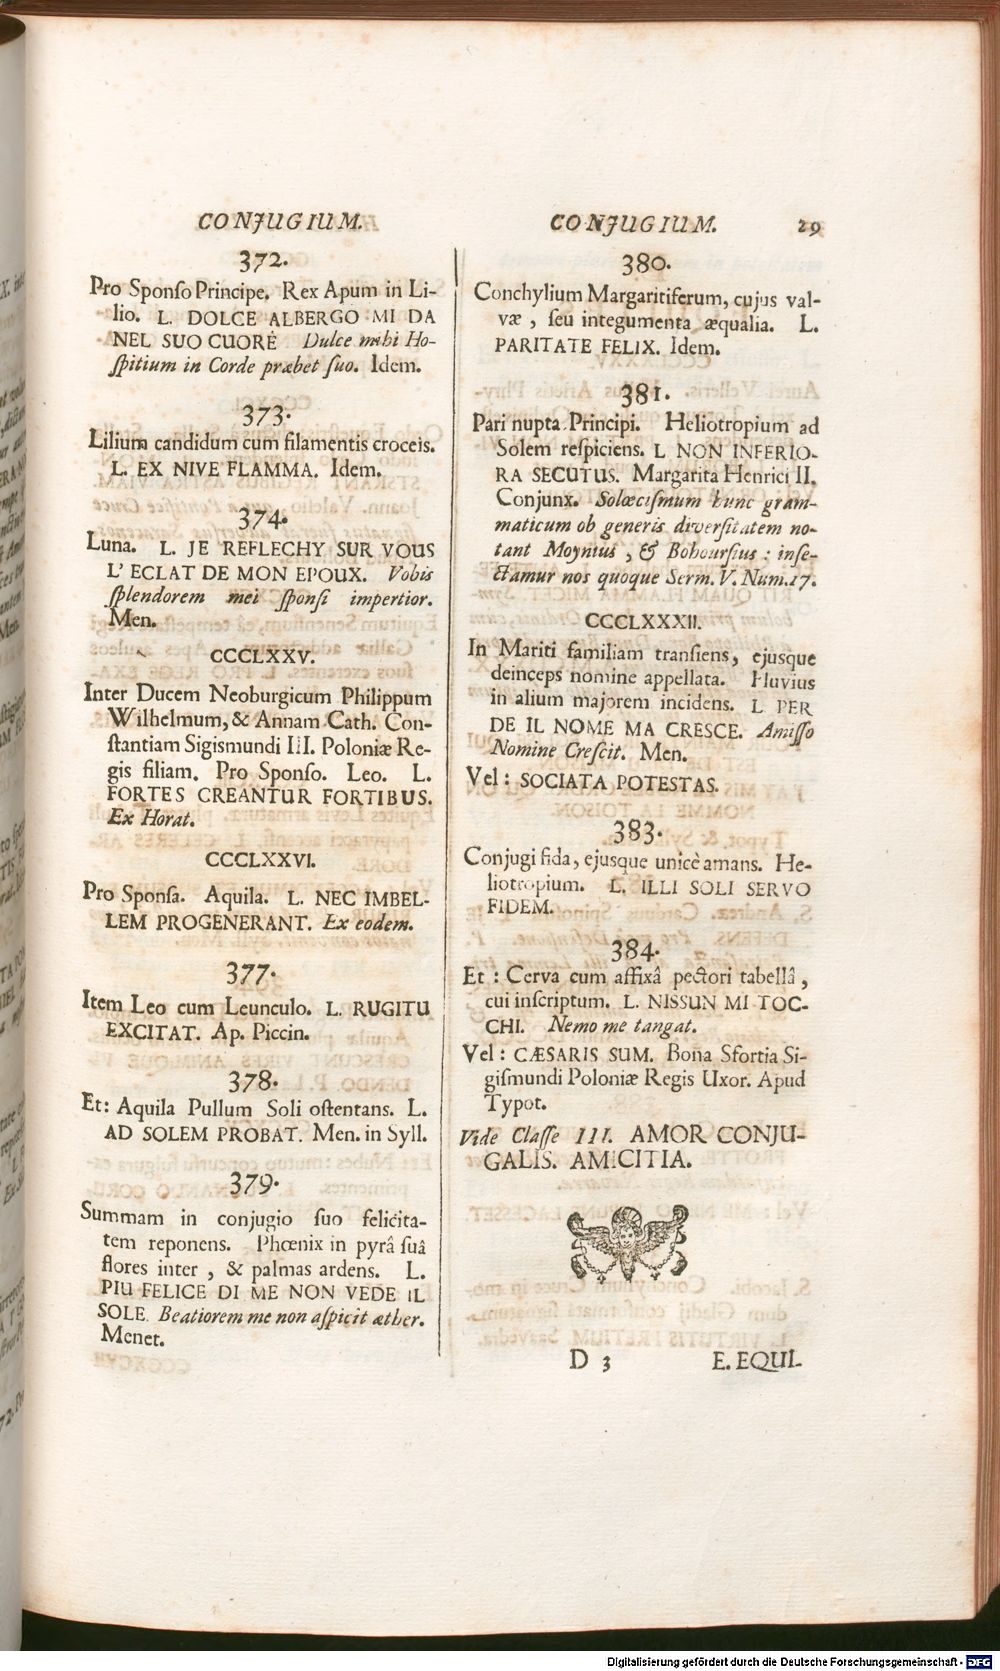 CONJUGIUM.
372.
Pro Sponſo Principe. Rex Apum in Li-
lio. L. DOLCE ALBERGO MI DA
NEL SUO CUORE Dulce mihi Ho-
ſpitium in Corde præbet ſuo. Idem.
373.
Lilium candidum cum filamentis croceis.
L. EX NIVE FLAMMA. Idem.
374.
Luna. L. JE REFLECHY SUR VOUS
L' ECLAT DE MON EPOUX. Vobis
ſplendorem mei ſponſi impertior.
Men.
CCCLXXV.
Inter Ducem Neoburgicum Philippum
Wilhelmum, & Annam Cath. Con-
ſtantiam Sigismundi III. Poloniæ Re-
gis filiam. Pro Sponſo. Leo. L.
FORTES CREANTUR FORTIBUS.
Ex Horat.
CCCLXXVI.
Pro Sponſa. Aquila. L. NEC IMBEL-
LEM PROGENERANT. Ex eodem.
377.
Item Leo cum Leunculo. L. RUGITU
EXCITAT. Ap. Piccin.
378.
Et: Aquila Pullum Soli oſtentans. L.
AD SOLEM PROBAT. Men. in Syll.
379.
Summam in conjugio ſuo felicita-
tem reponens. Phœnix in pyrâ ſuâ
flores inter, & palmas ardens. L.
PIU FELICE DI ME NON VEDE IL
SOLE. Beatiorem me non aſpicit æther.
Menet.
CONJUGIUM. 29
380.
Conchylium Margaritiferum, cujus val-
væ, ſeu integumenta æqualia. L.
PARITATE FELIX. Idem.
381.
Pari nupta Principi. Heliotropium ad
Solem reſpiciens. L NON INFERIO-
RA SECUTUS. Margarita Henrici II.
Conjunx. Solœciſmum hunc gram-
maticum ob generis diverſitatem no-
tant Moynius, & Bohourſius: inſe-
ctamur nos quoque Serm. V. Num. 17.
CCCLXXXII.
In Mariti familiam tranſiens, ejusque
deinceps nomine appellata. Fluvius
in alium majorem incidens. L PER
DE IL NOME MA CRESCE. Amiſſo
Nomine Creſcit. Men.
Vel: SOCIATA POTESTAS.
383.
Conjugi fida, ejusque unicè amans. He-
liotropium. L. ILLI SOLI SERVO
FIDEM.
384.
Et: Cerva cum affixâ pectori tabellâ,
cui inſcriptum. L. NISSUN MI TOC-
CHI. Nemo me tangat.
Vel: CÆSARIS SUM. Bona Sfortia Si-
giſmundi Poloniæ Regis Uxor. Apud
Typot.
Vide Claſſe III. AMOR CONJU-
GALIS. AMICITIA.
D 3 E. EQUI-
Digitalisierung gefördert durch die Deutsche Forschungsgemeinschaft - DFG